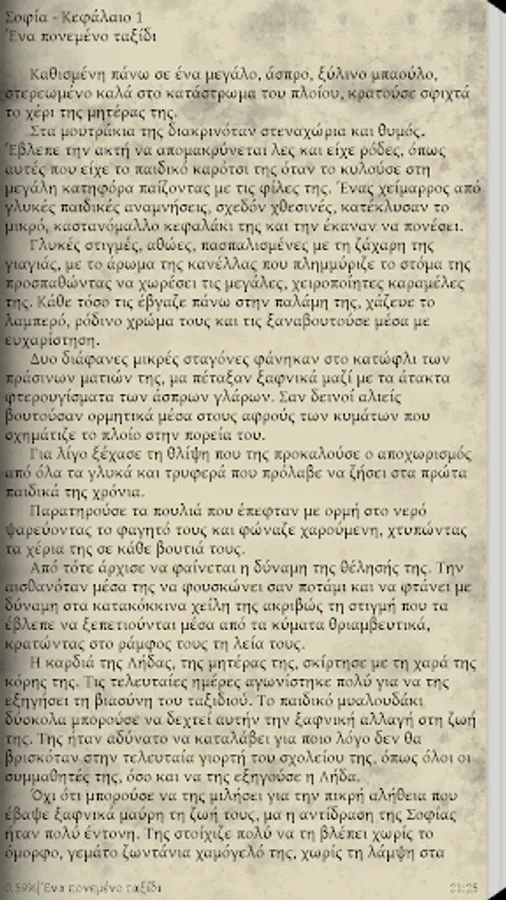 Σοφία - Κεφάλαιο 1
Ένα πονεμένο ταξίδι
Καθισμένη πάνω σε ένα μεγάλο, άσπρο, ξύλινο μπαούλο,
στερεωμένο καλά στο κατάστρωμα του πλοίου, κρατούσε σφιχτά
το χέρι της μητέρας της.
Στα μουτράκια της διακρινόταν στεναχώρια και θυμός.
Έβλεπε την ακτή να απομακρύνεται λες και είχε ρόδες, όπως
αυτές που είχε το παιδικό καρότσι της όταν το κυλούσε στη
μεγάλη κατηφόρα παίζοντας με τις φίλες της. Ένας χείμαρρος από
γλυκές παιδικές αναμνήσεις, σχεδόν χθεσινές, κατέκλυσαν το
μικρό, καστανόμαλλο κεφαλάκι της και την έκαναν να πονέσει.
Γλυκές στιγμές, αθώες, πασπαλισμένες με τη ζάχαρη της
γιαγιάς, με το άρωμα της κανέλλας που πλημμύριζε το στόμα της
προσπαθώντας να χωρέσει τις μεγάλες, χειροποίητες καραμέλες
της. Κάθε τόσο τις έβγαζε πάνω στην παλάμη της, χάζευε το
λαμπερό, ρόδινο χρώμα τους και τις ξαναβουτούσε μέσα με
ευχαρίστηση.
Δυο διάφανες μικρές σταγόνες φάνηκαν στο κατώφλι των
πράσινων ματιών της, μα πέταξαν ξαφνικά μαζί με τα άτακτα
φτερουγίσματα των άσπρων γλάρων. Σαν δεινοί αλιείς
βουτούσαν ορμητικά μέσα στους αφρούς των κυμάτων που
σχημάτιζε το πλοίο στην πορεία του.
Για λίγο ξέχασε τη θλίψη που της προκαλούσε ο αποχωρισμός
από όλα τα γλυκά και τρυφερά που πρόλαβε να ζήσει στα πρώτα
παιδικά της χρόνια.
Παρατηρούσε τα πουλιά που έπεφταν με ορμή στο νερό
ψαρεύοντας το φαγητό τους και φώναζε χαρούμενη, χτυπώντας
τα χέρια της σε κάθε βουτιά τους.
Από τότε άρχισε να φαίνεται η δύναμη της θέλησής της. Την
αισθανόταν μέσα της να φουσκώνει σαν ποτάμι και να φτάνει με
δύναμη στα κατακόκκινα χείλη της ακριβώς τη στιγμή που τα
έβλεπε να ξεπετιούνται μέσα από τα κύματα θριαμβευτικά,
κρατώντας στο ράμφος τους τη λεία τους.
Η καρδιά της Λήδας, της μητέρας της, σκίρτησε με τη χαρά της
κόρης της. Τις τελευταίες ημέρες αγωνίστηκε πολύ για να της
εξηγήσει τη βιασύνη του ταξιδιού. Το παιδικό μυαλουδάκι
δύσκολα μπορούσε να δεχτεί αυτήν την ξαφνική αλλαγή στη ζωή
της. Της ήταν αδύνατο να καταλάβει για ποιο λόγο δεν θα
βρισκόταν στην τελευταία γιορτή του σχολείου της, όπως όλοι οι
συμμαθητές της, όσο και να της εξηγούσε η Λήδα.
Όχι ότι μπορούσε να της μιλήσει για την πικρή αλήθεια που
έβαψε ξαφνικά μαύρη τη ζωή τους, μα η αντίδραση της Σοφίας
ήταν πολύ έντονη. Της στοίχιζε πολύ να τη βλέπει χωρίς το
όμορφο, γεμάτο ζωντάνια χαμόγελό της, χωρίς τη λάμψη στα
0.59%|Ένα πονεμένο ταξίδι
21:25